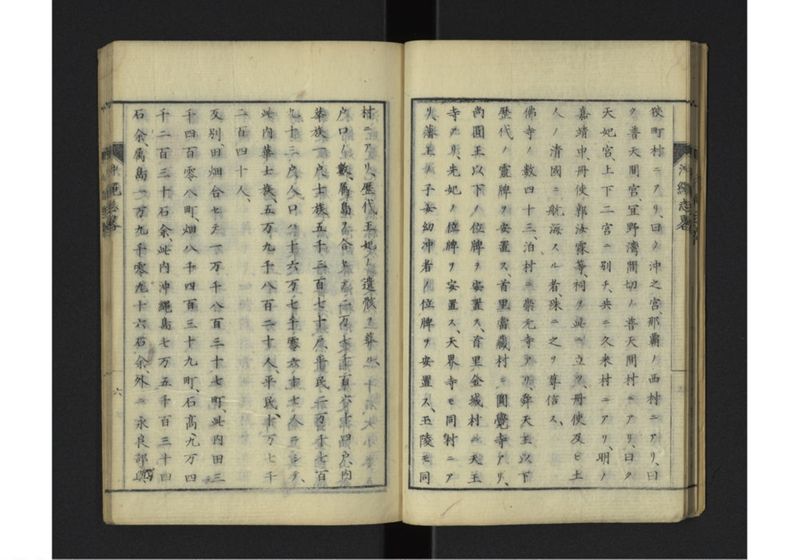 町村ニアリ、曰ク沖之宮、那覇ノ西村ニアリ、曰
ク普天間宮、宜野灣間切ノ普天間村ニアリ、曰ク
天妃宮、上下二宮ニ別チ、共ニ久米村ニアリ、明ノ
嘉靖中、冊使郭汝霖等、祠ヲ此ニ立ツ、冊使及ヒ土
人ノ清國ニ航海スル者、殊ニ之ヲ尊信ス、
佛寺ノ數四十三、泊村ニ崇元寺アリ、舜天王以下
歴代ノ靈牌ヲ安置ス、首里當藏村ニ圓覺寺アリ、
尚圓王以下ノ位牌ヲ安置ス、首里金城村ニ天王
寺アリ、先妃ノ位牌ヲ安置ス、天界寺モ同村ニア
リ、藩王ノ子女幼冲者ノ位牌ヲ安置ス、玉陵モ同
沖繩志畧
村ニアリ、歴代王妃ノ遺骸ヲ葬ル、
戸口ノ數、屬島ヲ合シテ二万七千百六十四戸、内
華族一戸、士族五千三百七十戸、平民二万千七百
九十三戸、人口十六万七千零六十七人
此内華士族、五万九千八百二十人、平民、十万七千
二百四十人、
反別、田畑合セテ一万千八百三十七町、此内田三
千四百零八町、畑八千四百三十九町、石高九万四
千二百三十石余、此内沖繩島七万五千百三十四
石余、屬島一万九千零九十六石余、外ニ永良部與
沖繩志畧
六